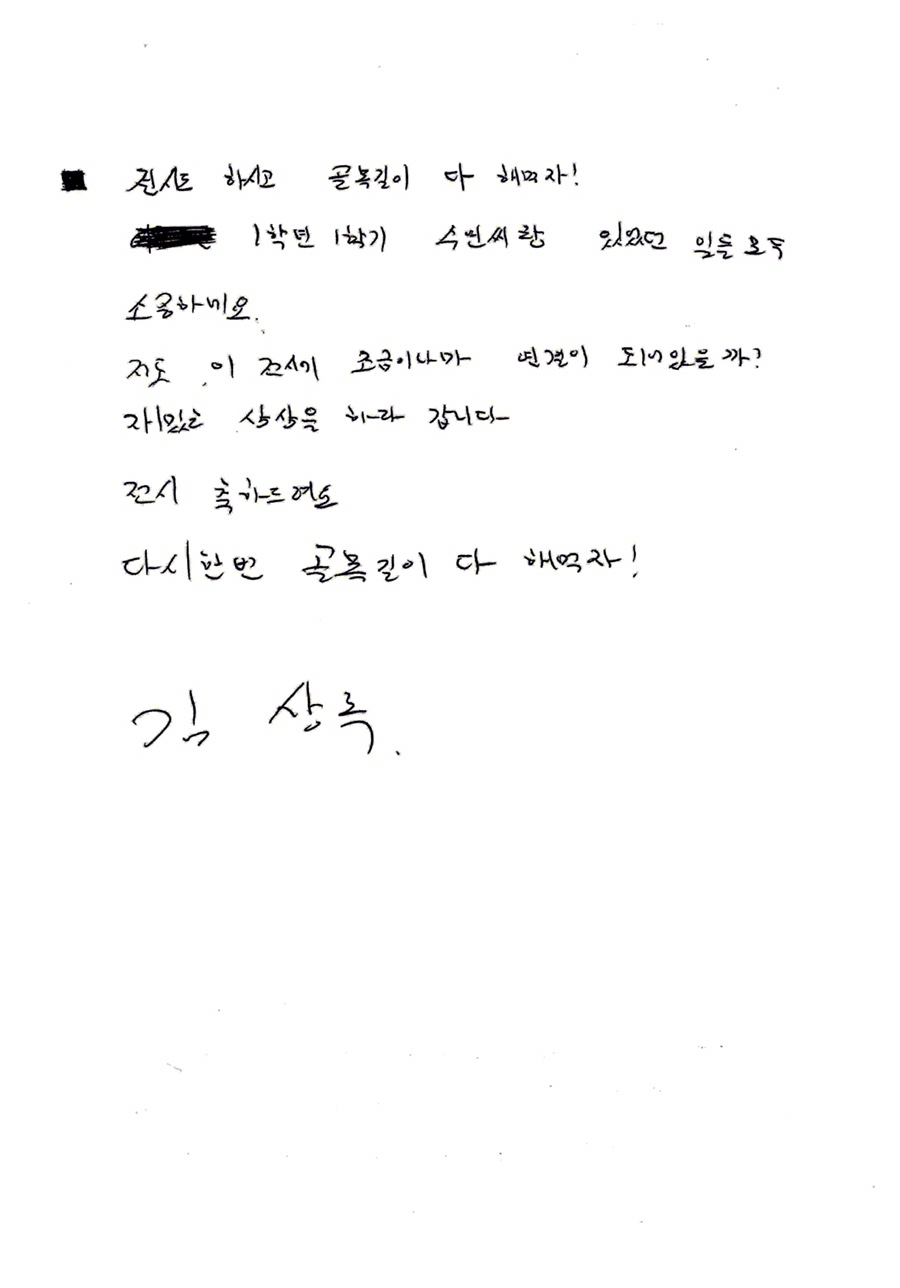 전시도 하시고 골목길이 다 해먹자!
1학년 1학기 수연씨랑 있었던 일들 모두
소중하네요.
저도 이 전시에 조금이나마 연결이 되어있을까?
재밌는 상상을 하고 갑니다
전시 축하드려요
다시한번 골목길이 다 해먹자!
김 상록.